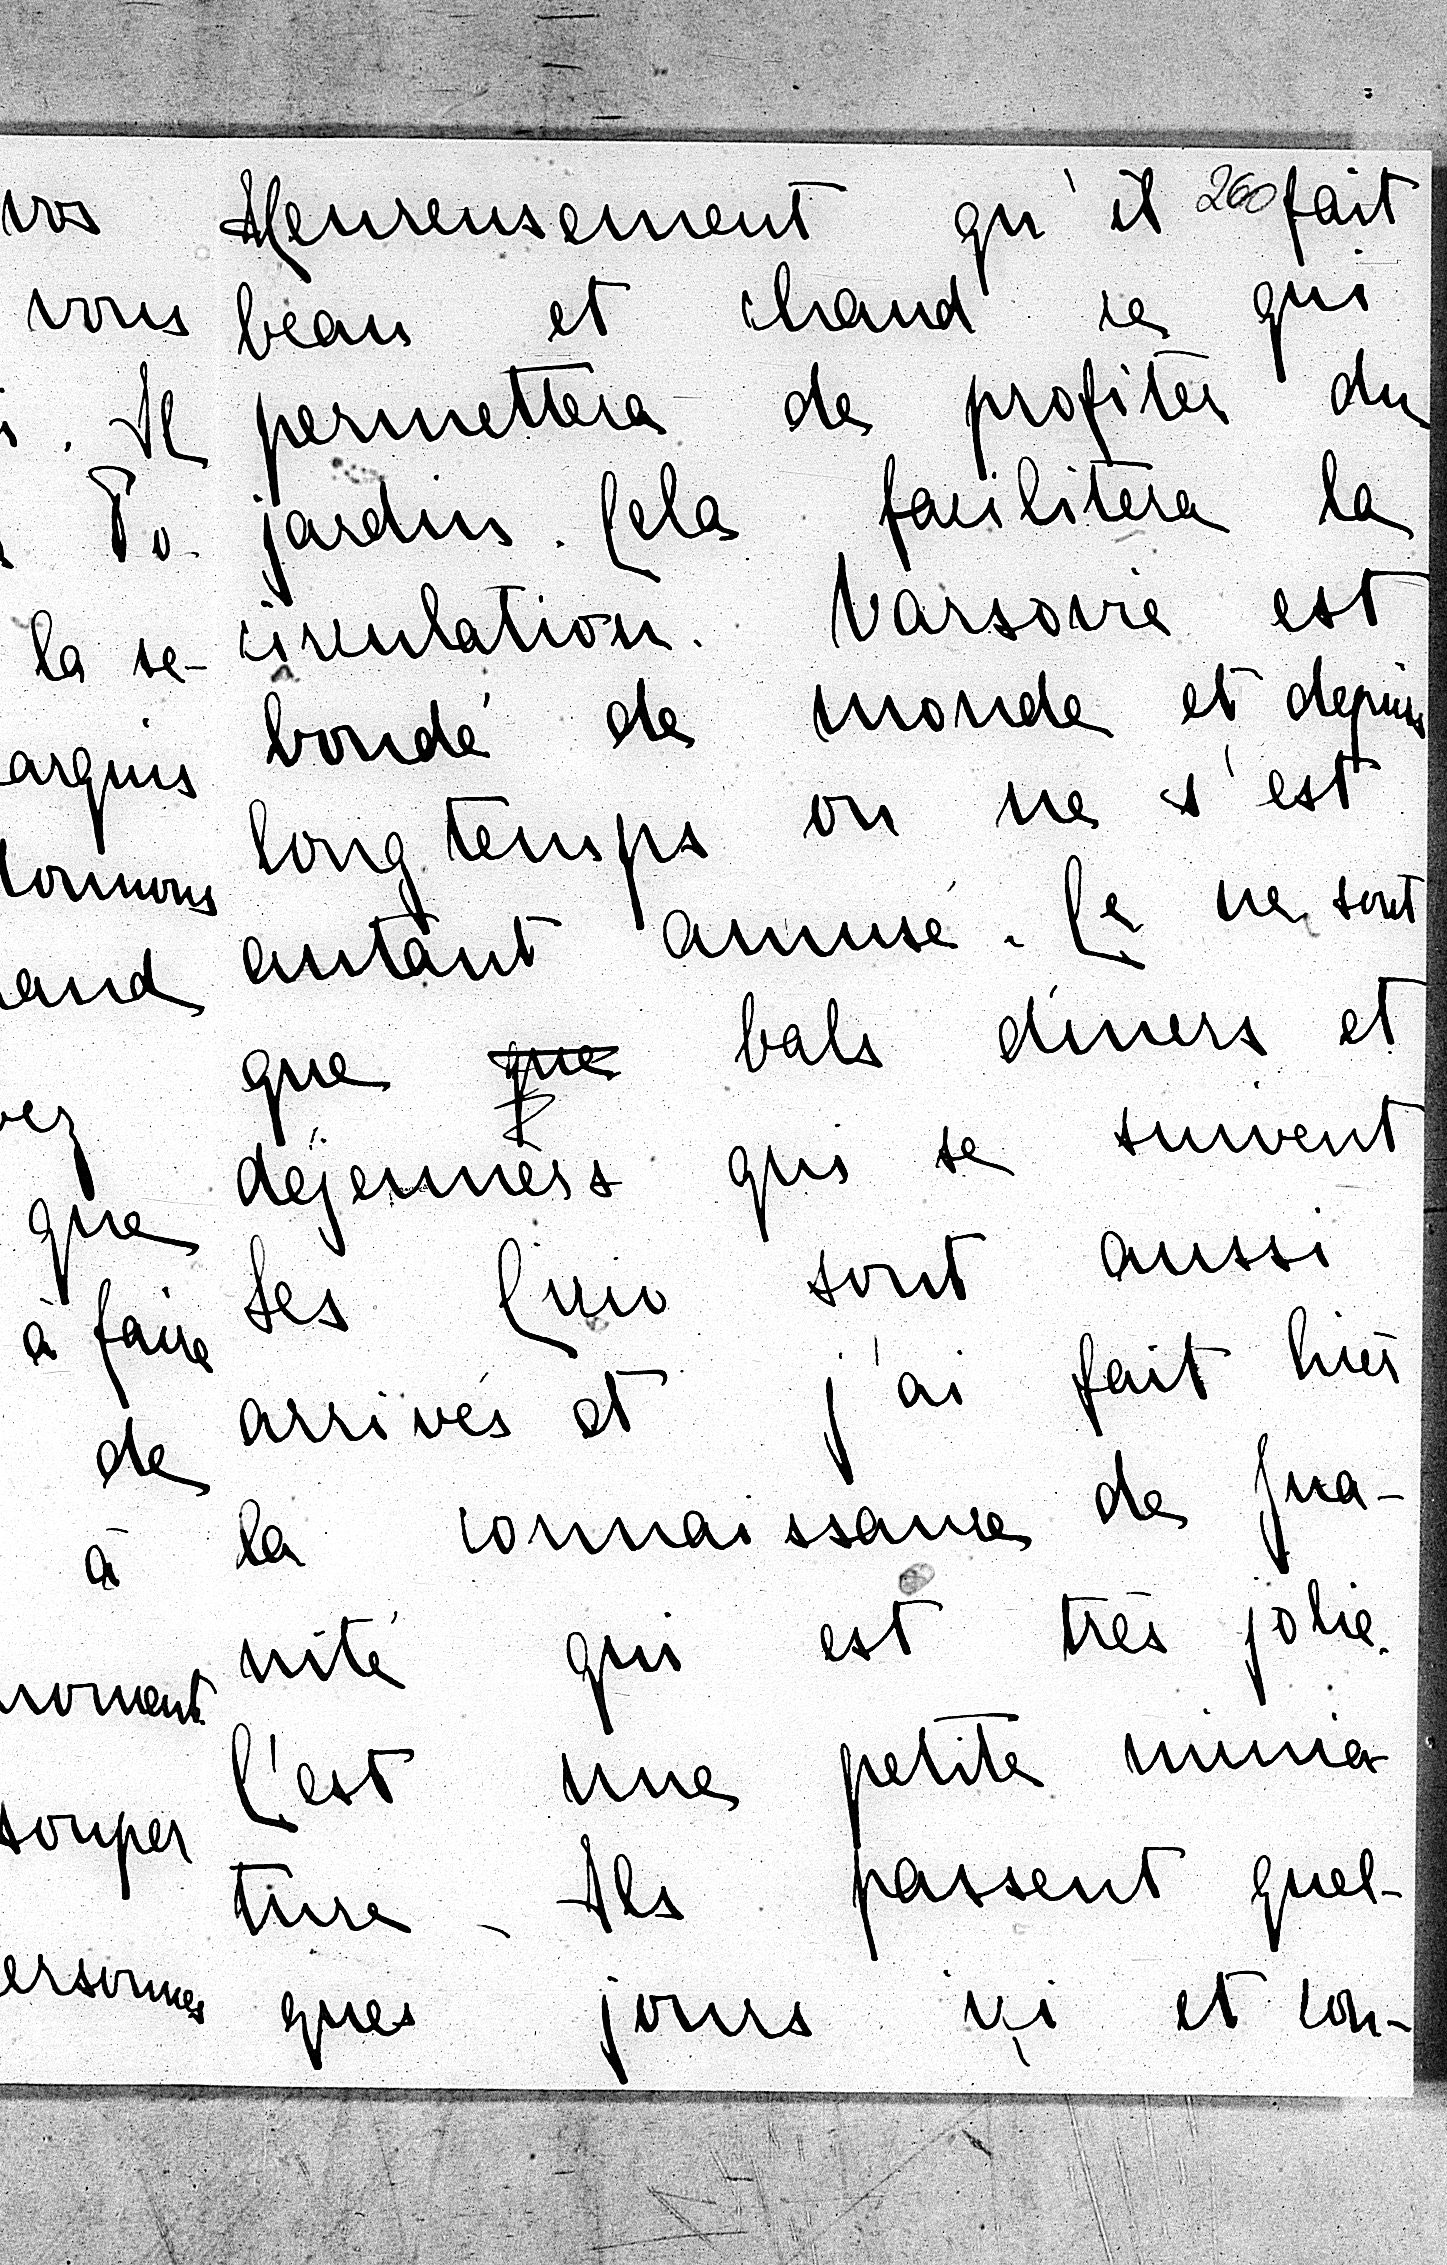 vos
vous
. Il
Po-
la se-
arquis
donnons
and
vez
que
à faire
de
à
moment
souper
ersonnes
260
Heureusement qu'il fait
beau et chaud ce qui
permettera de profiter du
jardin. Cela facilitera la
circulation. Varsovie est
bondé de monde et depuis
longtemps on ne s'est
autant amusé. Ce ne sont
que que bals diners et
déjeuners qui se suivent
Les sont aussi
arrivés et j'ai fait hier
la connaissance de Jua-
nita qui est très jolie.
C'est une petite minia-
ture. Ils passent quel-
ques jours ici et con-